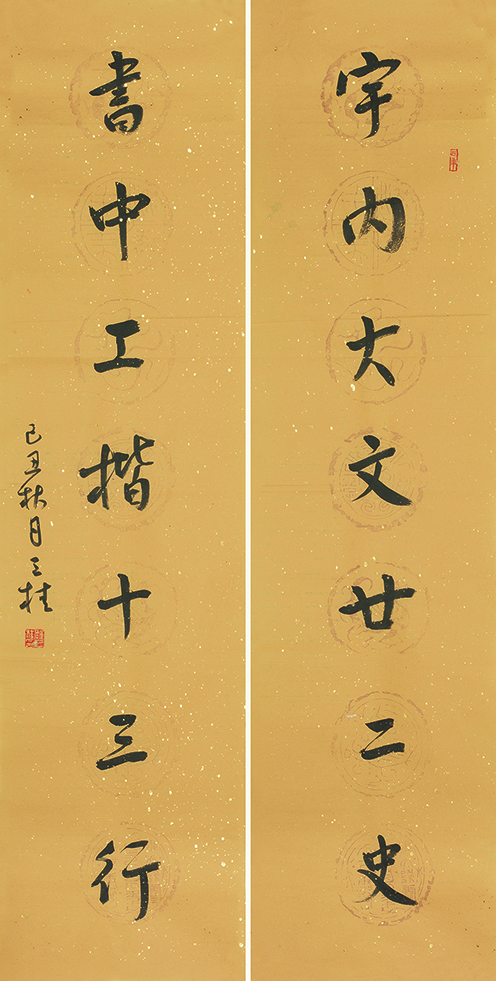 宇内大文廿二史
書中工楷十三行
己丑秋月三桂